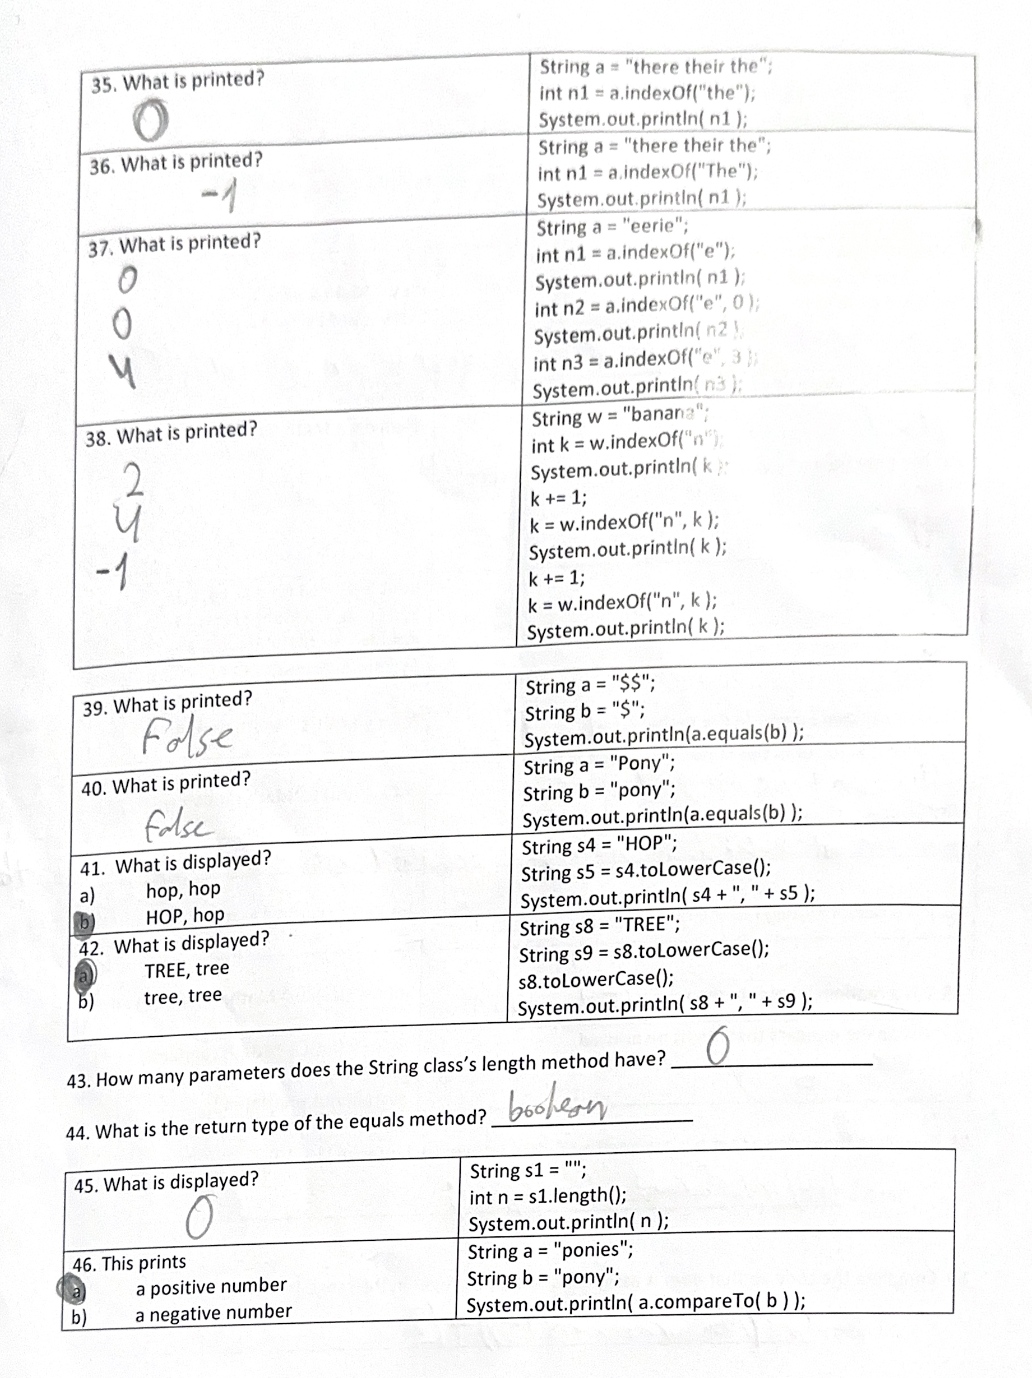 35. What is printed?
0
String a = "there their the";
int n1 = a.indexOf("the");
System.out.println( n1 );
36. What is printed?
-1
String a = "there their the";
int n1 = a.indexOf("The");
System.out.println( n1 );
37. What is printed?
0
0
4
String a = "eerie";
int n1 = a.indexOf("e");
System.out.println( n1 );
int n2 = a.indexOf("e", 0 );
System.out.println( n2 );
int n3 = a.indexOf("e", 3 );
System.out.println( n3 );
38. What is printed?
2
4
-1
String w = "banana";
int k = w.indexOf("n");
System.out.println( k );
k += 1;
k = w.indexOf("n", k );
System.out.println( k );
k += 1;
k = w.indexOf("n", k );
System.out.println( k );
39. What is printed?
False
String a = "$$";
String b = "$";
System.out.println(a.equals(b) );
40. What is printed?
false
String a = "Pony";
String b = "pony";
System.out.println(a.equals(b) );
41. What is displayed?
a) hop, hop
b) HOP, hop
String s4 = "HOP";
String s5 = s4.toLowerCase();
System.out.println( s4 + ", " + s5 );
42. What is displayed?
a) TREE, tree
b) tree, tree
String s8 = "TREE";
String s9 = s8.toLowerCase();
s8.toLowerCase();
System.out.println( s8 + ", " + s9 );
43. How many parameters does the String class's length method have? 0
44. What is the return type of the equals method? boolean
45. What is displayed?
0
String s1 = "";
int n = s1.length();
System.out.println( n );
46. This prints
a) a positive number
b) a negative number
String a = "ponies";
String b = "pony";
System.out.println( a.compareTo( b ) );